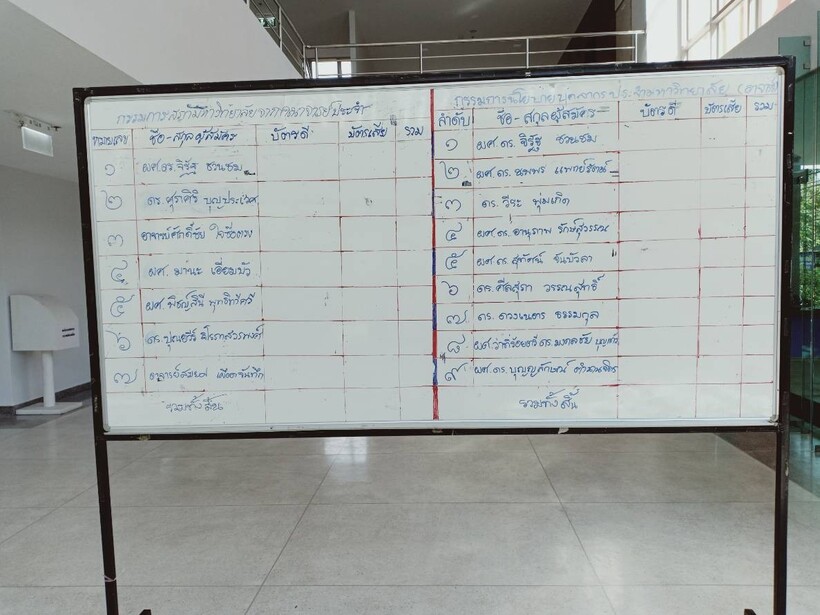 กรรมการสภามหาวิทยาลัยจากคณาจารย์ประจำ
หมายเลข ชื่อ-สกุลผู้สมัคร บัตรดี บัตรเสีย รวม
๑ ผศ.ดร.จิรัฐ ชวนชม
๒ ดร.สุรศิริ บุญประเวศ
๓ อาจารย์ศักดิ์ชัย ใจซื่อตรง
๔ ผศ. มานะ เอี่ยมบัว
๕ ผศ.พิชญ์สินี
๖ ดร.
๗ อาจารย์
รวมทั้งสิ้น
กรรมการนโยบายบุคลากรประจำมหาวิทยาลัย
ลำดับ ชื่อ-สกุลผู้สมัคร บัตรดี บัตรเสีย รวม
๑ ผศ.ดร. จิรัฐ ชวนชม
๒ ผศ.ดร. แพทย์รัตน์
๓ ดร. วีระ พุ่มเกิด
๔ ผศ.ดร. อานุภาพ รักษ์สุวรรณ
๕ ผศ.ดร. สุทัศน์ จันบัวลา
๖ ดร. ศีลสุภา วรรณสุทธิ์
๗ ดร. ดวงเนตร ธรรมกุล
๘ ผศ.ว่าที่ร้อยตรี ดร.มงคลชัย บุญแก้ว
๙ ผศ.ดร. บุญญลักษณ์ ตำนานจิตร
รวมทั้งสิ้น